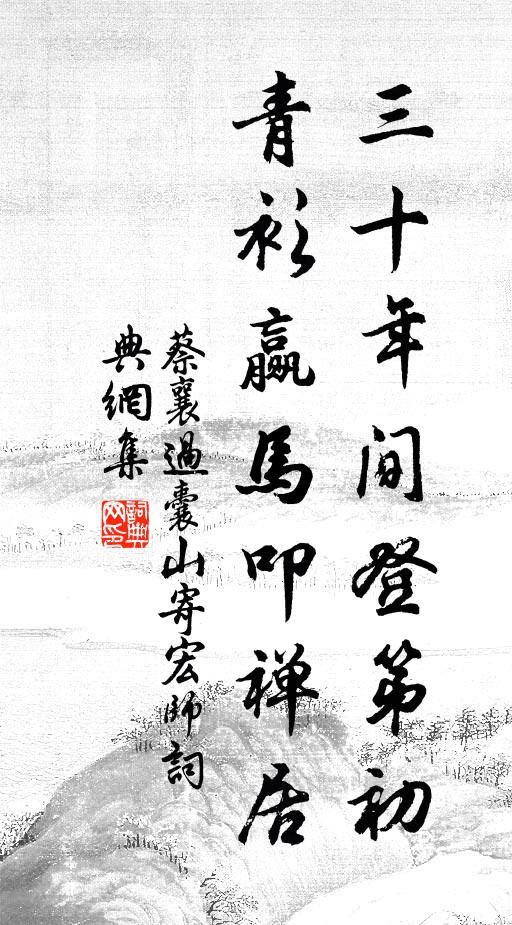 三十年间登第初
青衫羸馬叩禅居
蔡襄過囊山寄宏師詞
典網集
詞典
网印